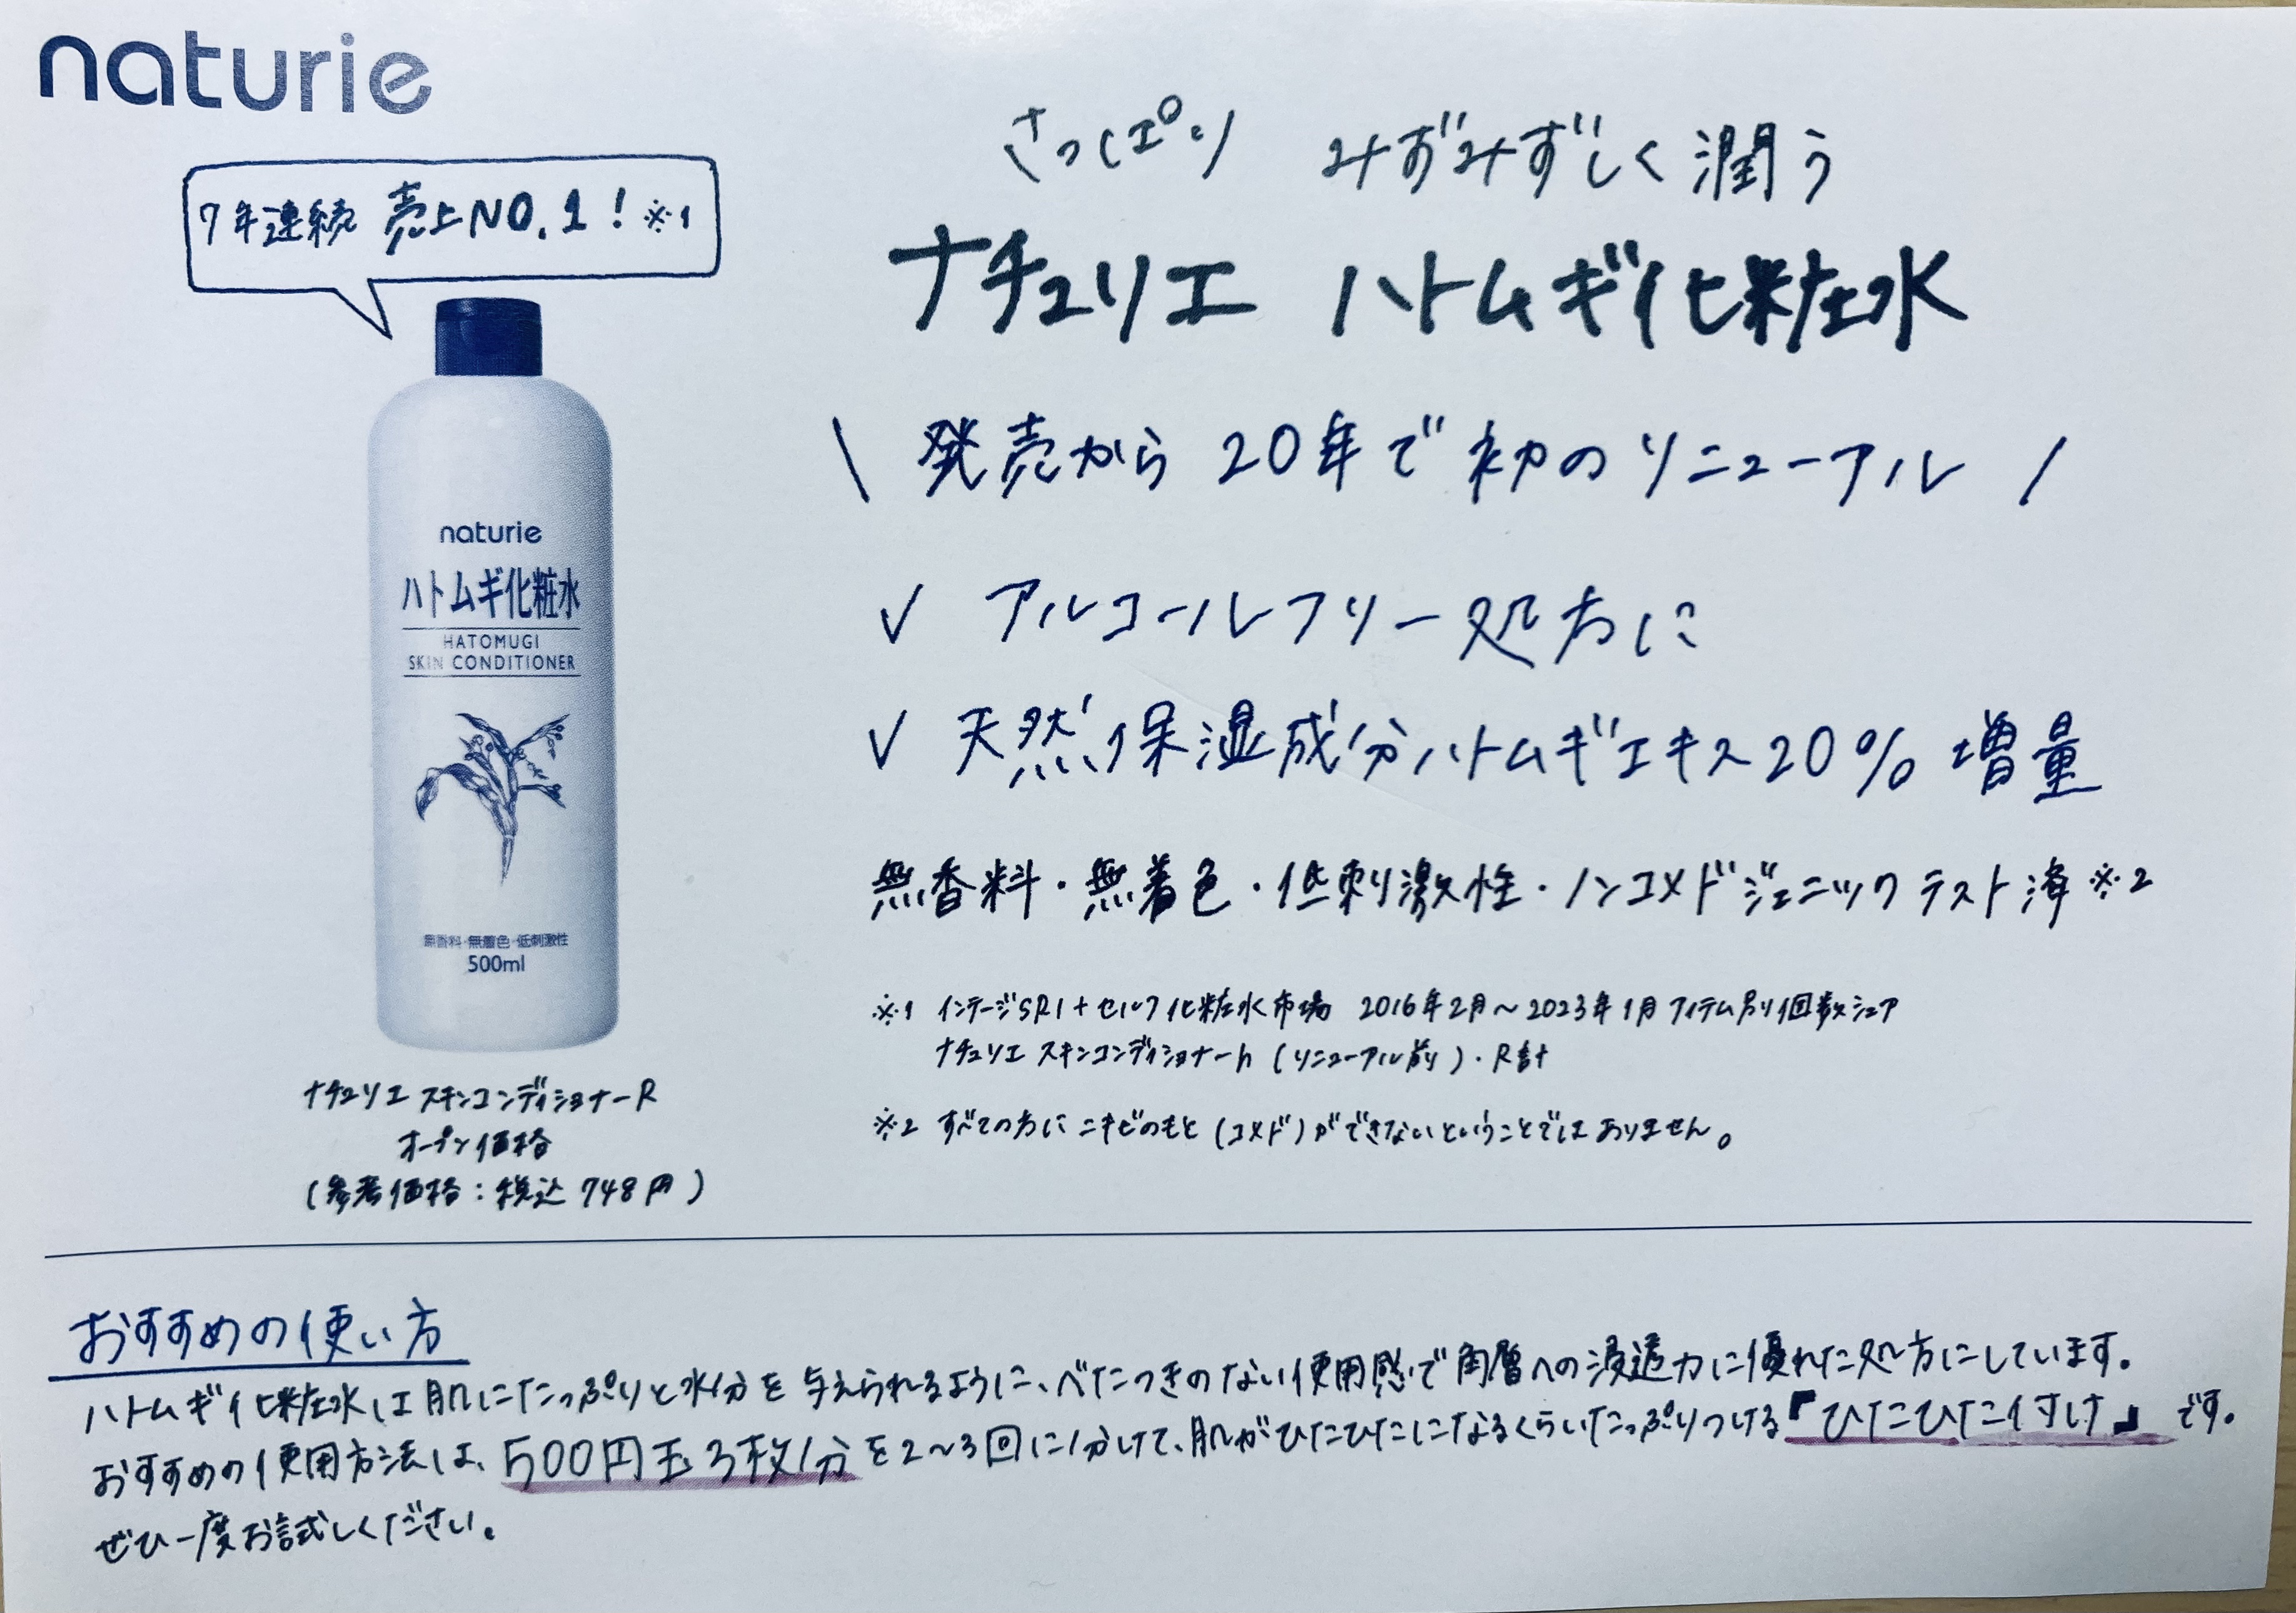 naturie
7年連続 売上NO.1!※1
naturie
ハトムギ化粧水
HATOMUGI
SKIN CONDITIONER
無香料・無着色・低刺激性
500ml
ナチュリエ スキンコンディショナーR
オープン価格
(参考価格:税込748円)
さっぱり みずみずしく潤う
ナチュリエ ハトムギ化粧水
\ 発売から20年で初のリニューアル /
✓ アルコールフリー処方に
✓ 天然保湿成分ハトムギエキス20%増量
無香料・無着色・低刺激性・ノンコメドジェニックテスト済※2
※1 インテージSRI+セルフ化粧水市場 2016年2月~2023年1月アイテム別個数シェア
ナチュリエ スキンコンディショナーh(リニューアル前)・R計
※2 すべての方にニキビのもと(コメド)ができないということではありません。
おすすめの使い方
ハトムギ化粧水は肌にたっぷりと水分を与えられるように、べたつきのない使用感で角層への浸透力に優れた処方にしています。
おすすめの使用方法は、500円玉3枚分を2~3回に分けて、肌がひたひたになるくらいたっぷりつける『ひたひた付け』です。
ぜひ一度お試しください。